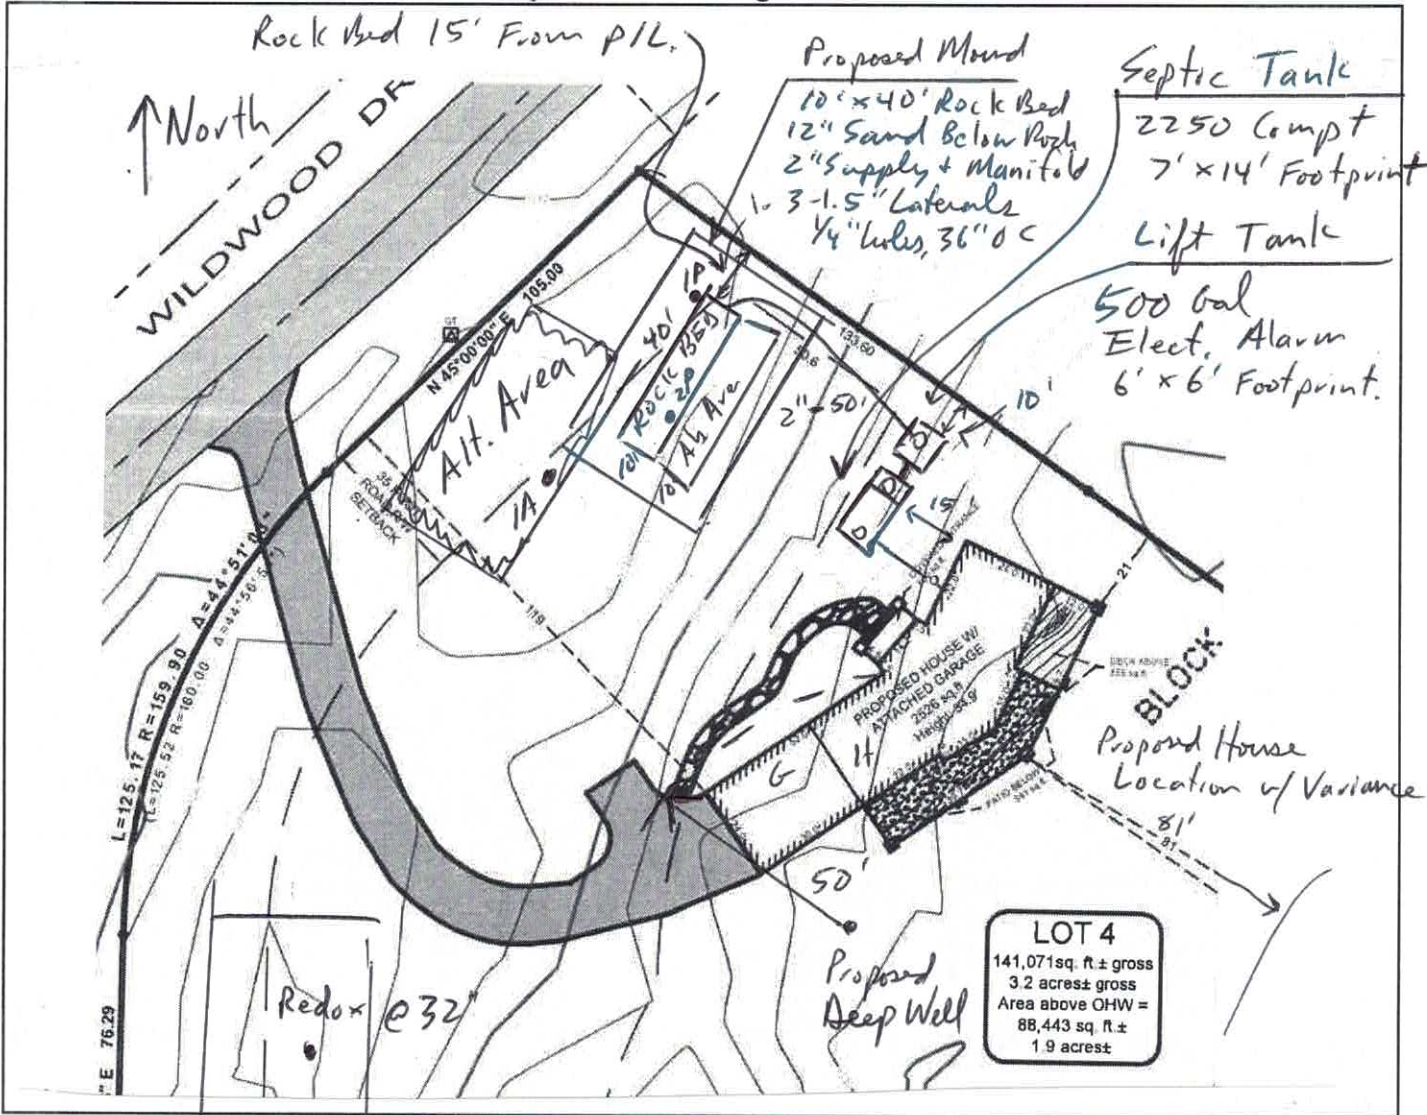 Rock Bed 15' From P/L.
↑ North
WILDWOOD DR
Proposed Mound
10' x 40' Rock Bed
12" Sand Below Rock
2" Supply + Manifold
3-1.5" Laterals
1/4" holes, 36" OC
Septic Tank
2250 Compt
7' x 14' Footprint
Lift Tank
500 Gal
Elect. Alarm
6' x 6' Footprint.
N 45°00'00" E 105.00
133.60
50.6
1P
40'
ROCK BED
2P
10'
Ab Area
10'
Alt. Area
1A
2"-50'
10'
15'
35
ROAD
SETBACK
119
L=125.17 R=159.90
(L=125.52 R=160.00
PROPOSED HOUSE W/
ATTACHED GARAGE
2526 sq.ft
G
H
21
DECK ABOVE
BLOCK
PATIO BELOW
Proposed House
Location w/ Variance
81'
81
50'
Proposed
Deep Well
Redox @ 32"
" E 76.29
LOT 4
141,071sq. ft.± gross
3.2 acres± gross
Area above OHW =
88,443 sq. ft.±
1.9 acres±